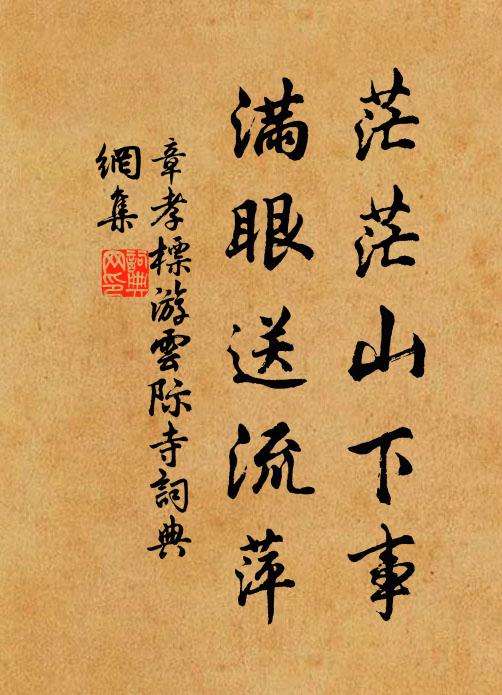 茫茫山下事
滿眼送流萍
章孝標游雲际寺詞典
網集
詞典網印